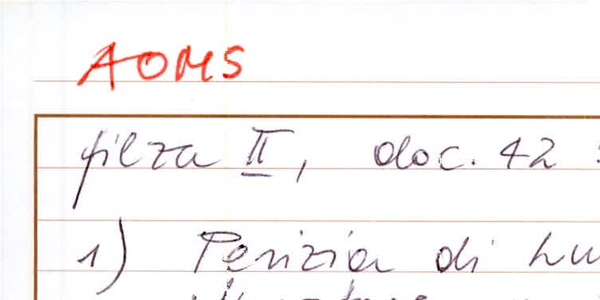 AOMS
filza II, doc. 42 :
1) Perizia di Lu